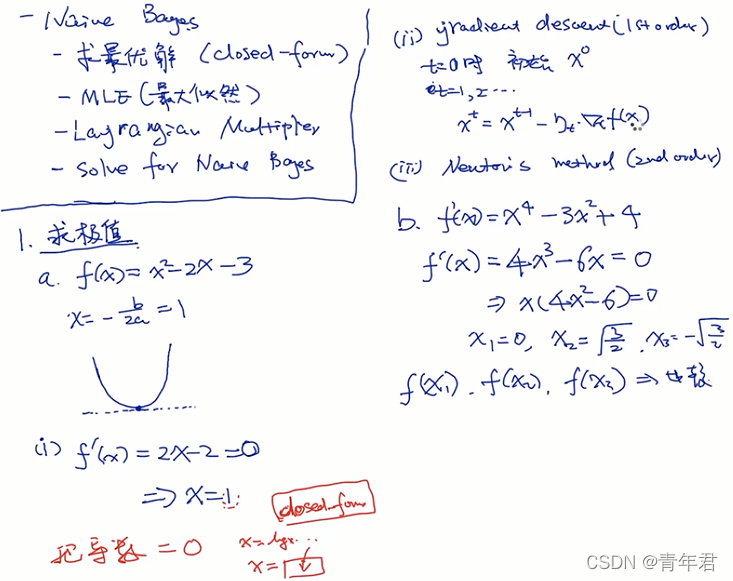 - Naive Bayes
- 求最优解 (closed-form)
- MLE (最大似然)
- Lagrangian Multiplier
- Solve for Naive Bayes
1. 求极值
a. f(x) = x² - 2x - 3
x = - b/2a = 1
(i) f'(x) = 2x - 2 = 0
⇒ x = 1
closed-form
把导数 = 0
x = lgx...
x = ↓
(ii) gradient descent (1st order)
t=0时 初始 x⁰
t=1, 2 ...
xᵗ = xᵗ⁻¹ - ηₜ · ∇f(x)
(iii) Newton's method (2nd order)
b. f(x) = x⁴ - 3x² + 4
f'(x) = 4x³ - 6x = 0
⇒ x(4x² - 6) = 0
x₁ = 0, x₂ = √3/2, x₃ = -√3/2
f(x₁), f(x₂), f(x₃) ⇒ 比较
CSDN @青年君